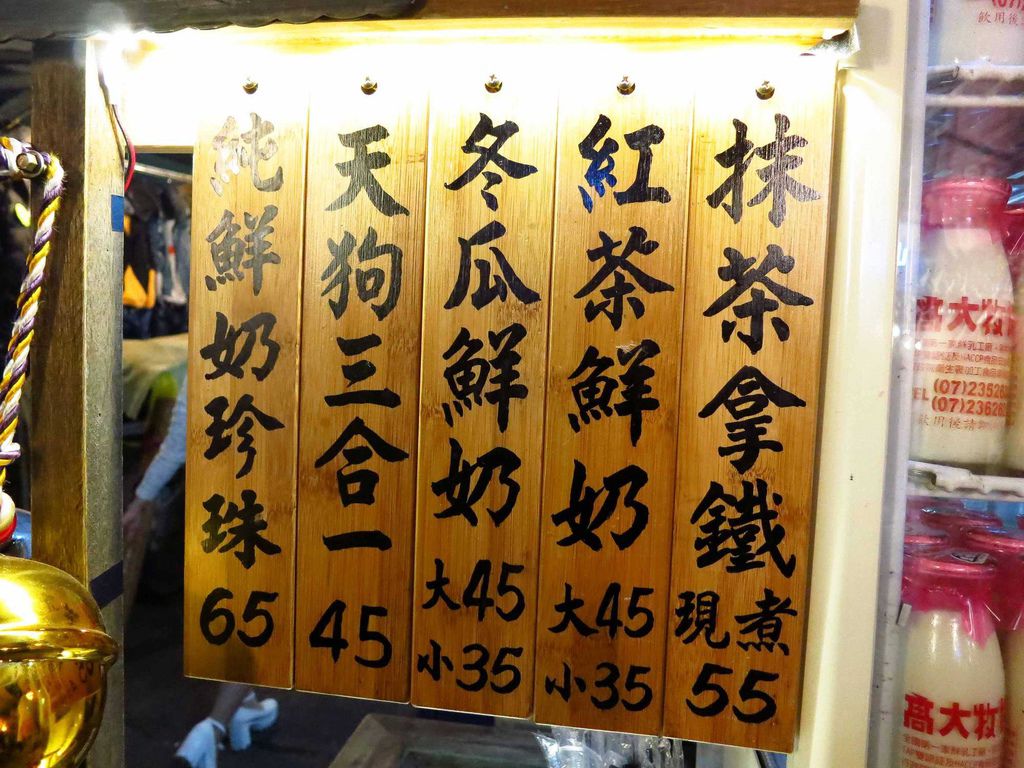 抹茶拿鐵
現煮
55
紅茶鮮奶
大45
小35
冬瓜鮮奶
大45
小35
天狗三合一
45
純鮮奶珍珠
65
飲用後
高大牧
(07)23526
TEL (07)23626
飲用後請
高大牧